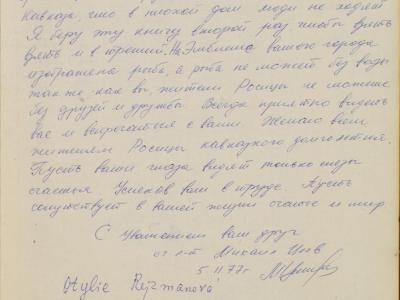 Кавказе, что в плохой дом люди не ходят
Я беру эту книгу второй раз, чтобы
и в третий. На эмблеме вашего города
изображена рыба, а рыба не может без воды
так же как вы, жители Росицы не можете
без друзей и дружбы. Всегда приятно видеть
вас и встречаться с вами. Желаю всем
жителям Росицы кавказского долголетия.
Пусть ваши глаза видят только слезы
счастья. Успехов вам в труде. Пусть
сопутствует в вашей жизни счастье и мир
С уважением ваш друг
Михаил
5.11.77г.
Otylie Rejzmanová